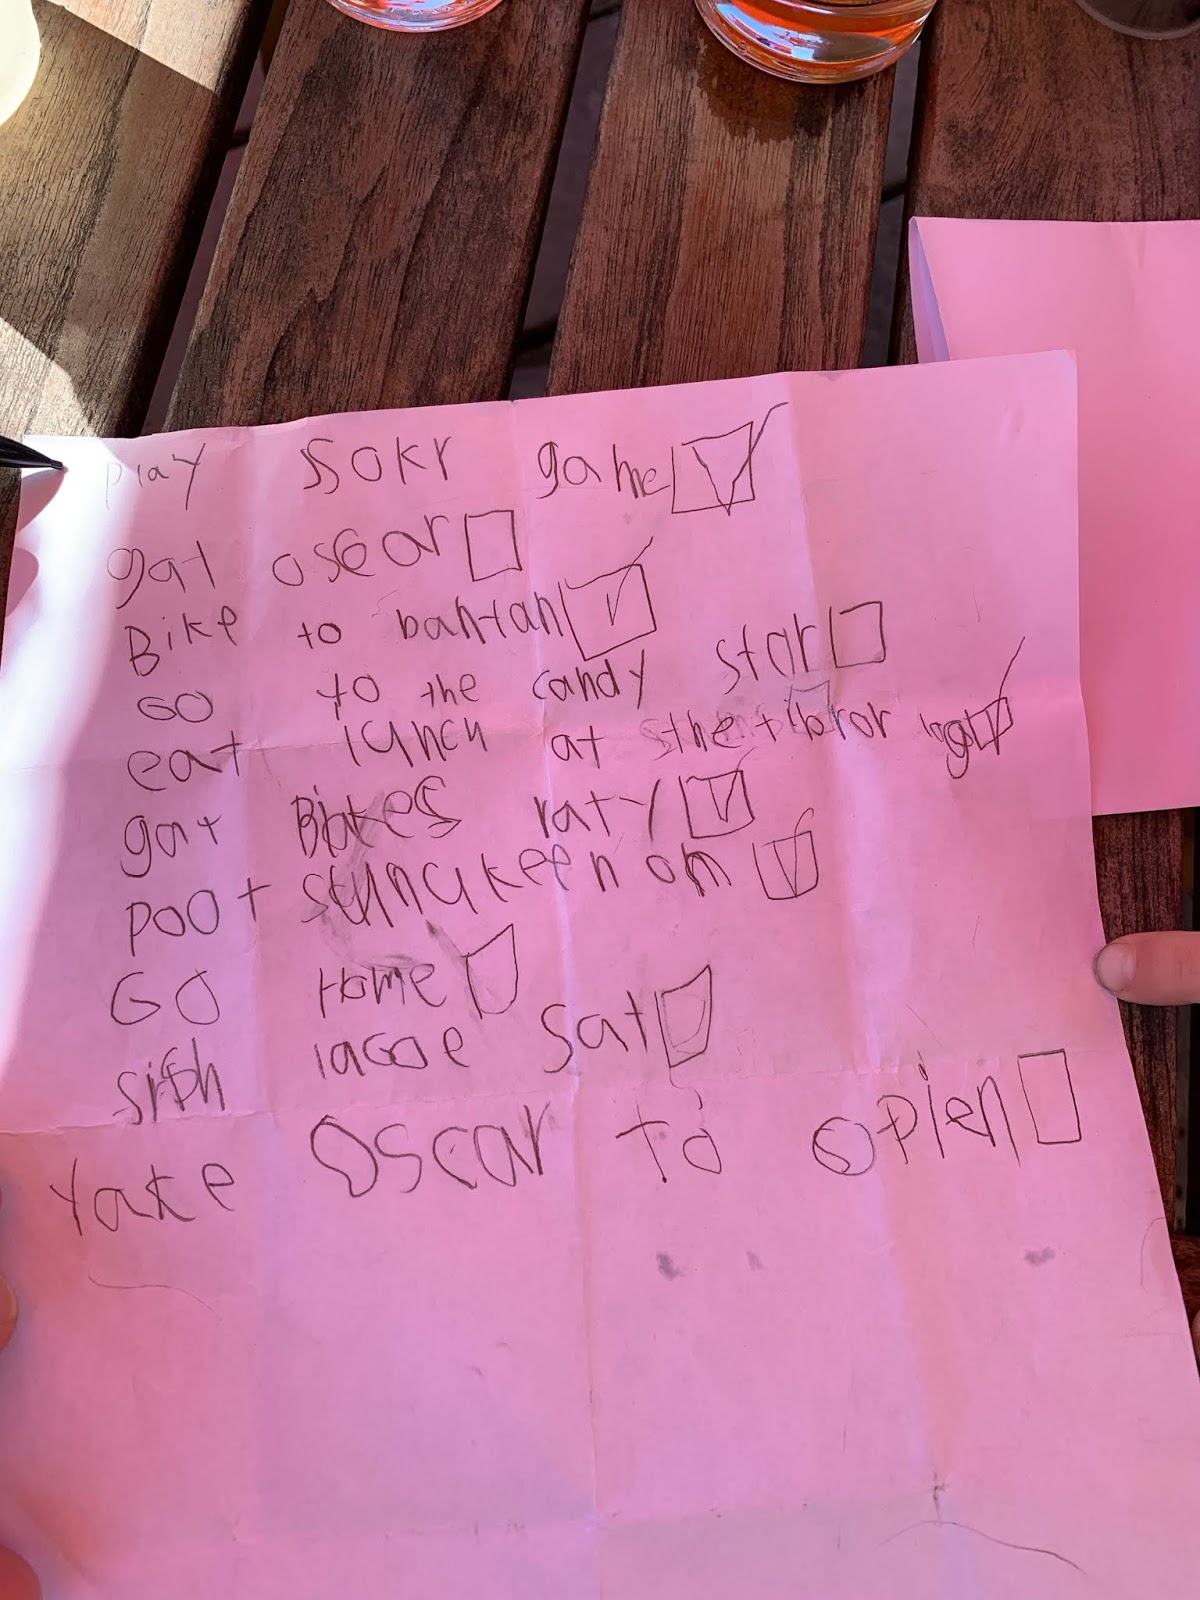 play ssokr game
gat oscar
Bike to bantan
GO to the candy star
eat lunch at the
gat Bikes raty
poot sunukeen om
GO Home
sifh lacoe sat
Take Oscar to oplen